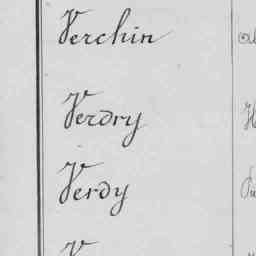 Verchin
Verdry
Verdy